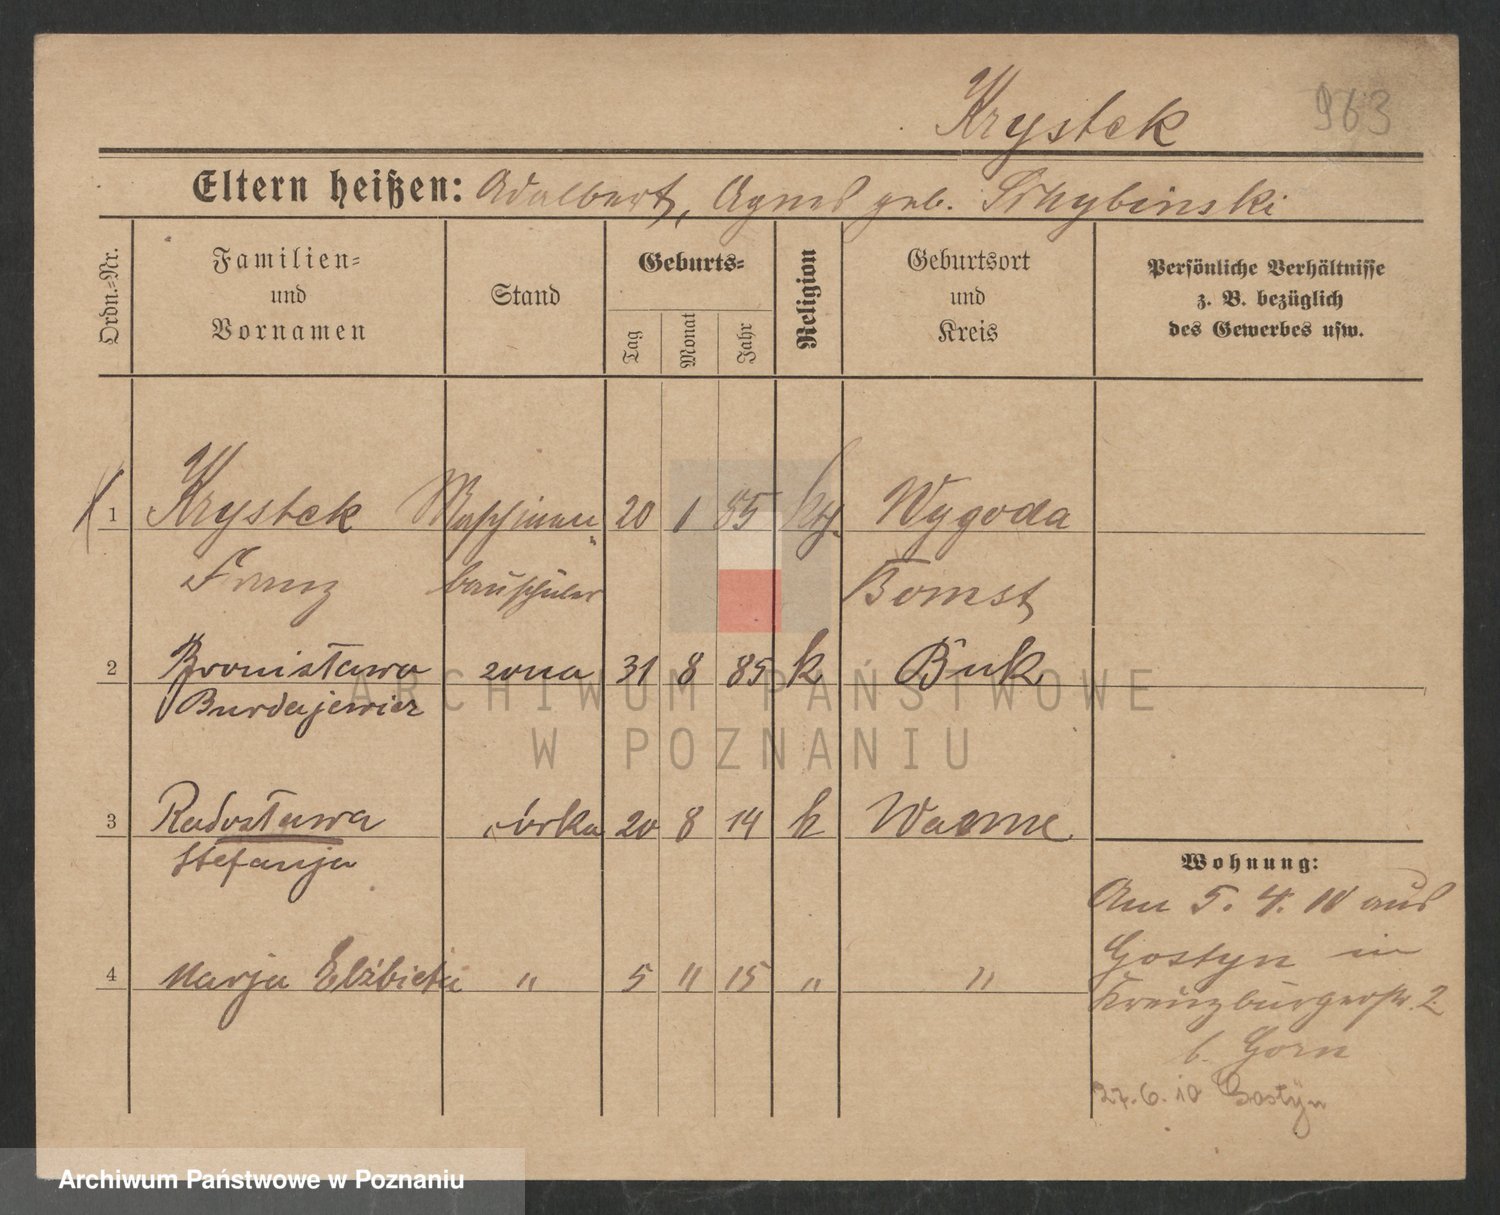 Krystek 963
Eltern heißen: Adalbert, Agnes geb. Skrybinski
Ordn.=Nr.
Familien=
und
Vornamen
Stand
Geburts=
Tag
Monat
Jahr
Religion
Geburtsort
und
Kreis
Persönliche Verhältnisse
z. B. bezüglich
des Gewerbes usw.
1 Krystek Maschinen 20 1 85 kth. Wygoda
Franz bauschüler Bomst
2 Bronisława żona 31 8 85 k Buk
Burdajewicz
3 Radosława córka 20 8 14 k Warne
Stefanja
Wohnung:
Am 5. 4. 10 aus
4 Marja Elżbieta " 5 " 15 " "
Gostyn in
Kreuzburgerstr. 2
b. Gorn
27.6.10 Gostyn
ARCHIWUM PAŃSTWOWE
W POZNANIU
Archiwum Państwowe w Poznaniu